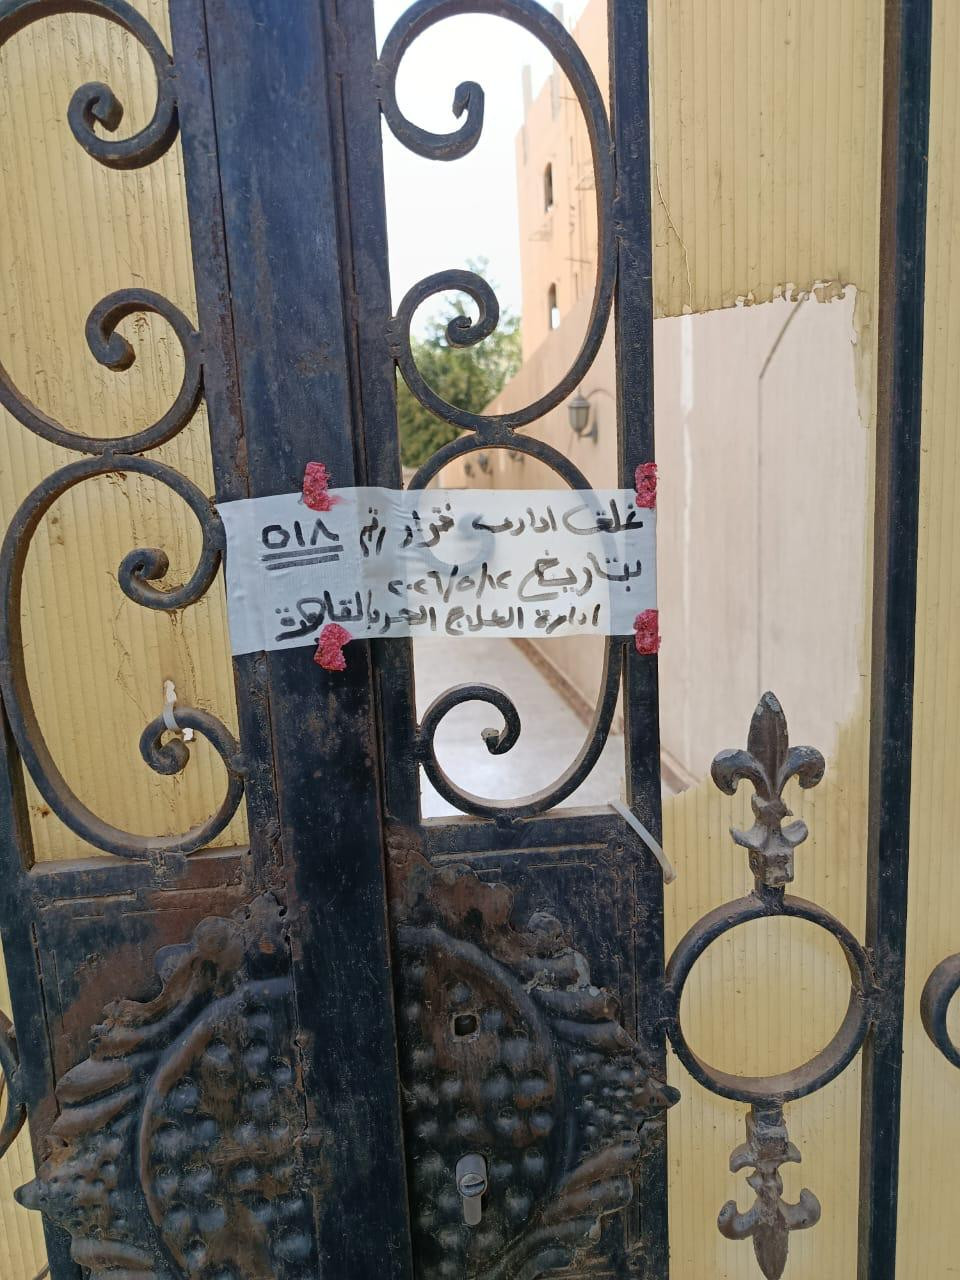 غلق ادارى قرار رقم ٥١٨
بتاريخ ٢٠٢٦/٥/١٢
ادارة العلاج الحر بالقاهرة